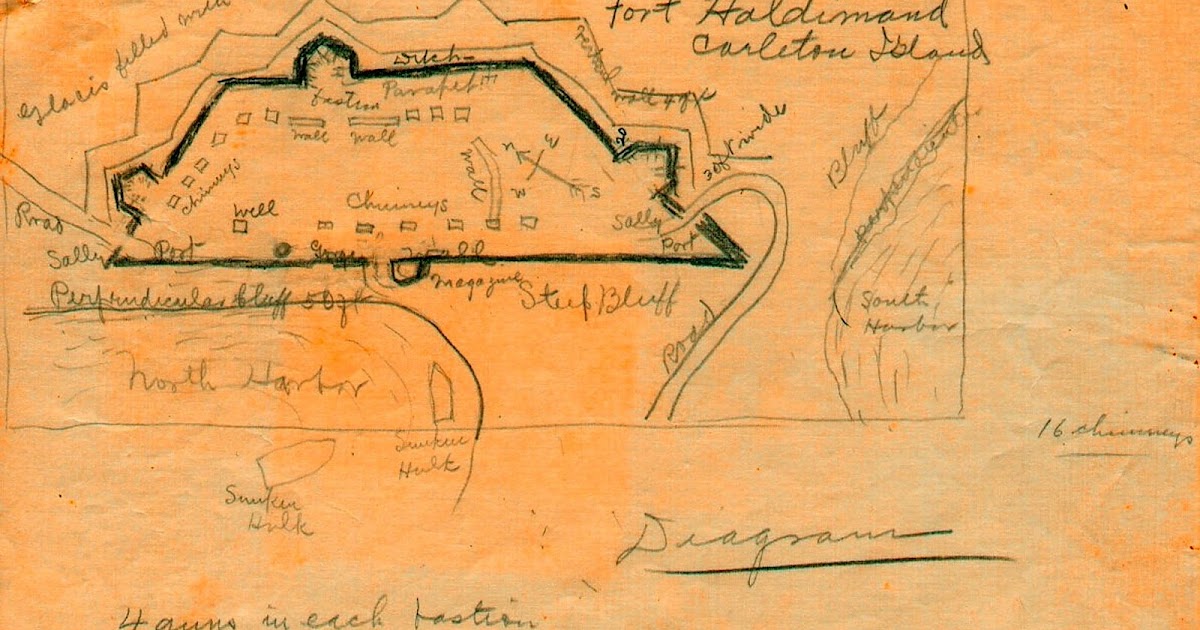 Fort Haldimand
Carleton Island
Glacis filled with
Ditch
Parapet
bastion
wall
wall
vertical
wall 4 ft
30 ft wide
Bluff
perpendicular
chimneys
wall
N
W
S
Well
Chimneys
Sally
Port
Road
Sally Port
Magazine
Perpendicular bluff 50 ft
Steep Bluff
South
Harbor
Road
North Harbor
Sunken
Hulk
16 chimneys
Sunken
Hulk
Diagram
4 guns in each bastion